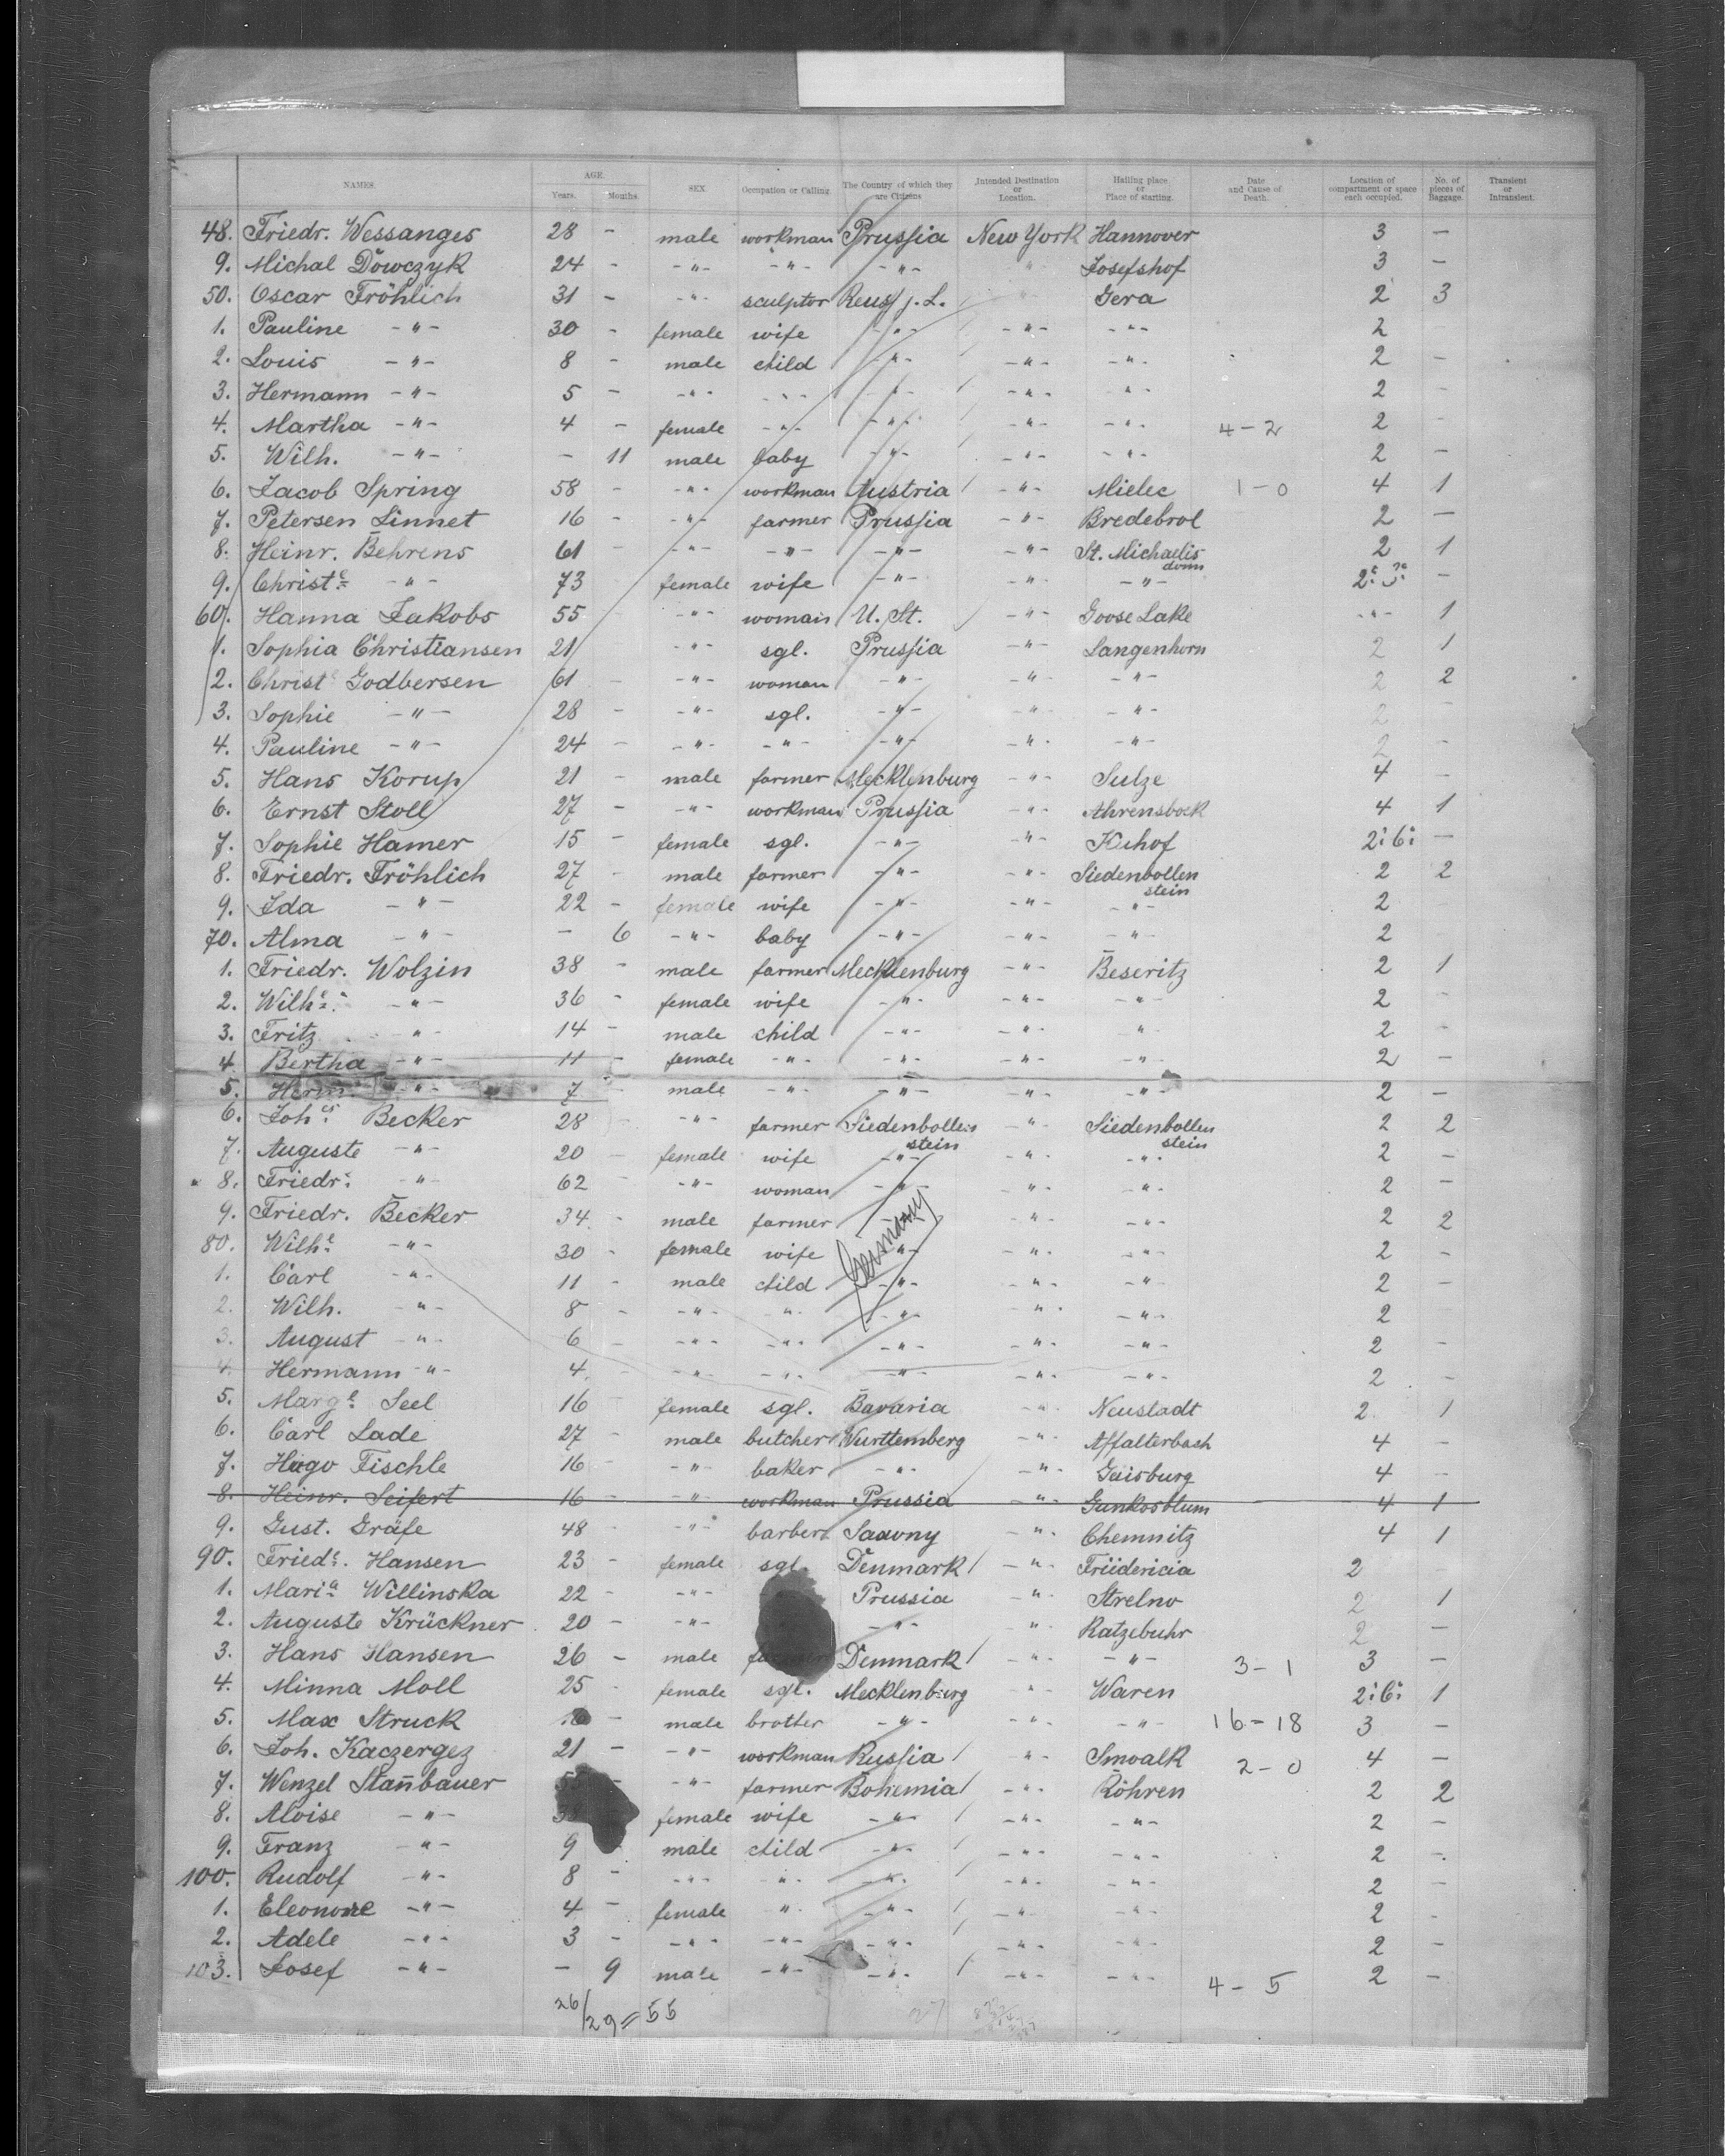 NAMES. AGE. Years. Months. SEX. Occupation or Calling. The Country of which they are Citizens Intended Destination or Location. Hailing place or Place of starting. Date and Cause of Death. Location of compartment or space each occupied. No. of pieces of Baggage. Transient or Intransient.
48. Friedr. Wessanges 28 - male workman Prussia New York Hannover 3 -
9. Michal Dowczyk 24 - -"- -"- -"- " Josefshof 3 -
50. Oscar Fröhlich 31 - -"- sculptor Reuss j. L. " Gera 2 3
1. Pauline -"- 30 - female wife -"- -"- -"- 2
2. Louis -"- 8 - male child -"- -"- -"- 2 -
3. Hermann -"- 5 - -"- -"- -"- -"- -"- 2 -
4. Martha -"- 4 - female -"- -"- -"- -"- 4-2 2 -
5. Wilh. -"- - 11 male baby -"- -"- -"- 2 -
6. Jacob Spring 58 - -"- workman Austria -"- Mielec 1-0 4 1
7. Petersen Linnet 16 - -"- farmer Prussia -"- Bredebrol 2 -
8. Heinr. Behrens 61 - -"- -"- -"- -"- St. Michaelis donn 2 1
9. Christe -"- 73 female wife -"- -"- -"- 2: -
60. Hanna Jakobs 55 -"- woman U. St. -"- Goose Lake -"- 1
1. Sophia Christiansen 21 -"- sgl. Prussia -"- Langenhorn 2 1
2. Christe Godbersen 61 - -"- woman -"- -"- -"- 2 2
3. Sophie -"- 28 - -"- sgl. -"- -"- -"- 2 -
4. Pauline -"- 24 - -"- -"- -"- -"- -"- 2 -
5. Hans Korup 21 - male farmer Mecklenburg -"- Sulze 4 -
6. Ernst Stoll 27 - -"- workman Prussia -"- Ahrensboek 4 1
7. Sophie Hamer 15 - female sgl. -"- -"- Kuhof 2:6: -
8. Friedr. Fröhlich 27 - male farmer -"- -"- Siedenbollen stein 2 2
9. Ida -"- 22 - female wife -"- -"- -"- 2
70. Alma -"- - 6 -"- baby -"- -"- -"- 2
1. Friedr. Wolzin 38 - male farmer Mecklenburg -"- Beseritz 2 1
2. Wilhe -"- 36 - female wife -"- -"- -"- 2 -
3. Fritz " 14 - male child -"- -"- " 2 -
4. Bertha -"- 11 - female -"- -"- -"- -"- 2 -
5. Herm. -"- 7 - male -"- -"- -"- -"- 2 -
6. Johes Becker 28 - -"- farmer Siedenbollen stein -"- Siedenbollen stein 2 2
7. Auguste -"- 20 - female wife -"- -"- -"- 2 -
8. Friedr: -"- 62 -"- woman -"- -"- -"- 2 -
9. Friedr. Becker 34. - male farmer -"- -"- -"- 2 2
Germany
80. Wilhe -"- 30 - female wife -"- -"- -"- 2 -
1. Carl -"- 11 - male child -"- -"- -"- 2 -
2. Wilh. -"- 8 - -"- -"- -"- -"- -"- 2
3. August -"- 6 - -"- -"- -"- -"- -"- 2 -
4. Hermann -"- 4. - -"- -"- -"- -"- -"- 2 -
5. Marge Seel 16 - female sgl. Bavaria -"- Neustadt 2. 1
6. Carl Lade 27 - male butcher Wurttemberg -"- Affalterbach 4 -
7. Hugo Fischle 16 - -"- baker -"- -"- Gaisburg 4 -
8. Heinr. Seifert 16 - -"- workman Prussia -"- Gunkosblum 4 1
9. Gust. Gräfe 48 - -"- barber Saxony -"- Chemnitz 4 1
90. Friede. Hansen 23 - female sgl. Denmark -"- Friidericia 2 -
1. Maria Willinska 22 - -"- Prussia -"- Strelno 2 1
2. Auguste Krückner 20 - -"- -"- " Ratzebuhr 2 -
3. Hans Hansen 26 - male farmer Denmark -"- -"- 3-1 3 -
4. Minna Moll 25 - female sgl. Mecklenburg -"- Waren 2:6: 1
5. Max Struck 16 - male brother -"- -"- -"- 16-18 3 -
6. Joh. Kaczergez 21 - -"- workman Russia -"- Smoalk 2-0 4 -
7. Wenzel Stan̄bauer - -"- farmer Bohemia -"- Röhren 2 2
8. Aloise -"- 38 female wife -"- -"- -"- 2 -
9. Franz -"- 9 - male child -"- -"- -"- 2 -
100. Rudolf -"- 8 - -"- -"- -"- -"- -"- 2 -
1. Eleonore -"- 4 - female " -"- -"- -"- 2 -
2. Adele -"- 3 - -"- -"- -"- -"- -"- 2 -
103. Josef -"- - 9 male -"- -"- -"- -"- 4-5 2 -
26/29=55 27